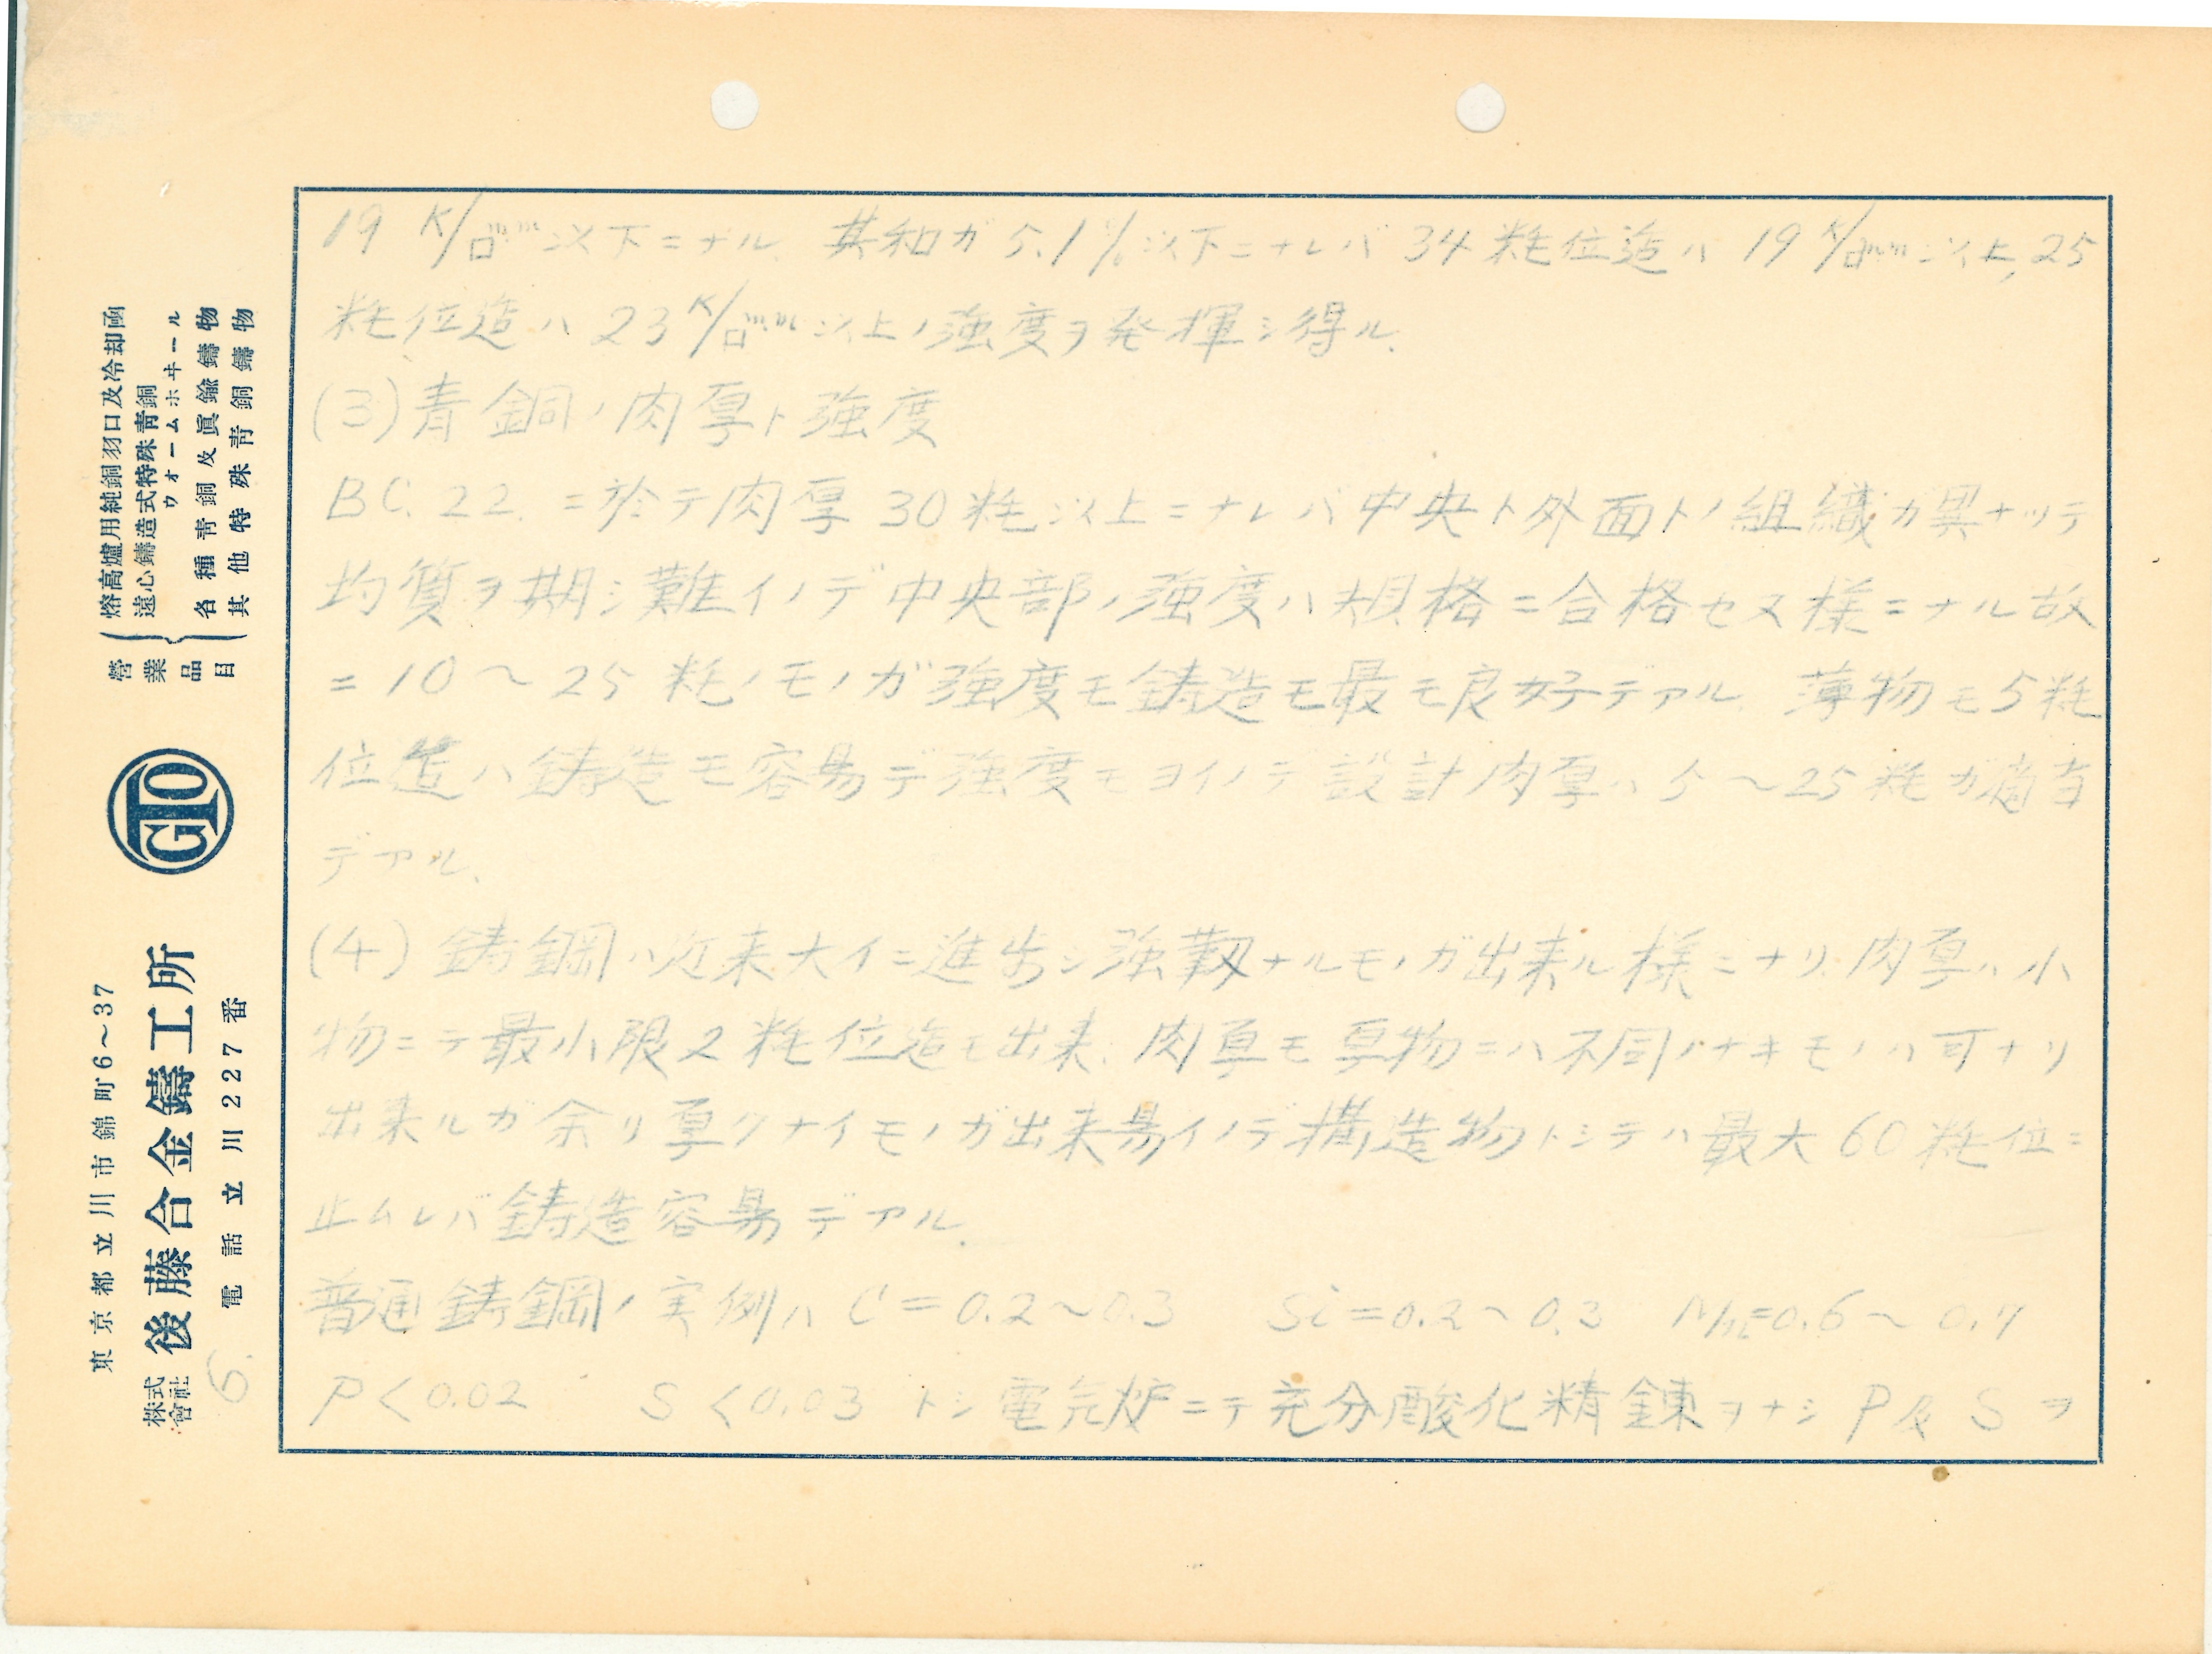 19 K/□mm 以下ニナル. 其和ガ 5.1% 以下ニナレバ 34 粍位迄ハ 19 K/□mm 以上, 25
粍位迄ハ 23 K/□mm 以上ノ強度ヲ発揮シ得ル.
(3) 青銅ノ肉厚ト強度
BC. 22. ニ於テ肉厚 30 粍以上ニナレバ中央ト外面トノ組織ガ異ナッテ
均質ヲ期シ難イノデ中央部ノ強度ハ規格ニ合格セヌ様ニナル故
ニ 10 ～ 25 粍ノモノガ強度モ鋳造モ最モ良好デアル. 薄物モ 5 粍
位迄ハ鋳造モ容易デ強度モヨイノデ設計肉厚ハ 5 ～ 25 粍ガ適当
デアル.
(4) 鋳鋼ハ近来大イニ進歩シ強靱ナルモノガ出来ル様ニナリ. 肉厚ハ小
物ニテ最小限 2 粍位迄モ出来. 肉厚モ厚物ニハ不同ノナキモノハ可ナリ
出来ルガ余リ厚クナイモノガ出来易イノデ構造物トシテハ最大 60 粍位ニ
止ムレバ鋳造容易デアル.
普通鋳鋼ノ実例ハ C = 0.2 ～ 0.3 Si = 0.2 ～ 0.3 Mn = 0.6 ～ 0.7
P < 0.02 S < 0.03 トシ電気炉ニテ充分酸化精錬ヲナシ P 及 S ヲ
營業品目
熔高爐用純銅羽口及冷却函
遠心鑄造式特殊青銅
ウォームホヰール
各種青銅及眞鍮鑄物
其他特殊青銅鑄物
GTO
東京都立川市錦町6～37
株式會社 後藤合金鑄工所
電話立川227番
6.